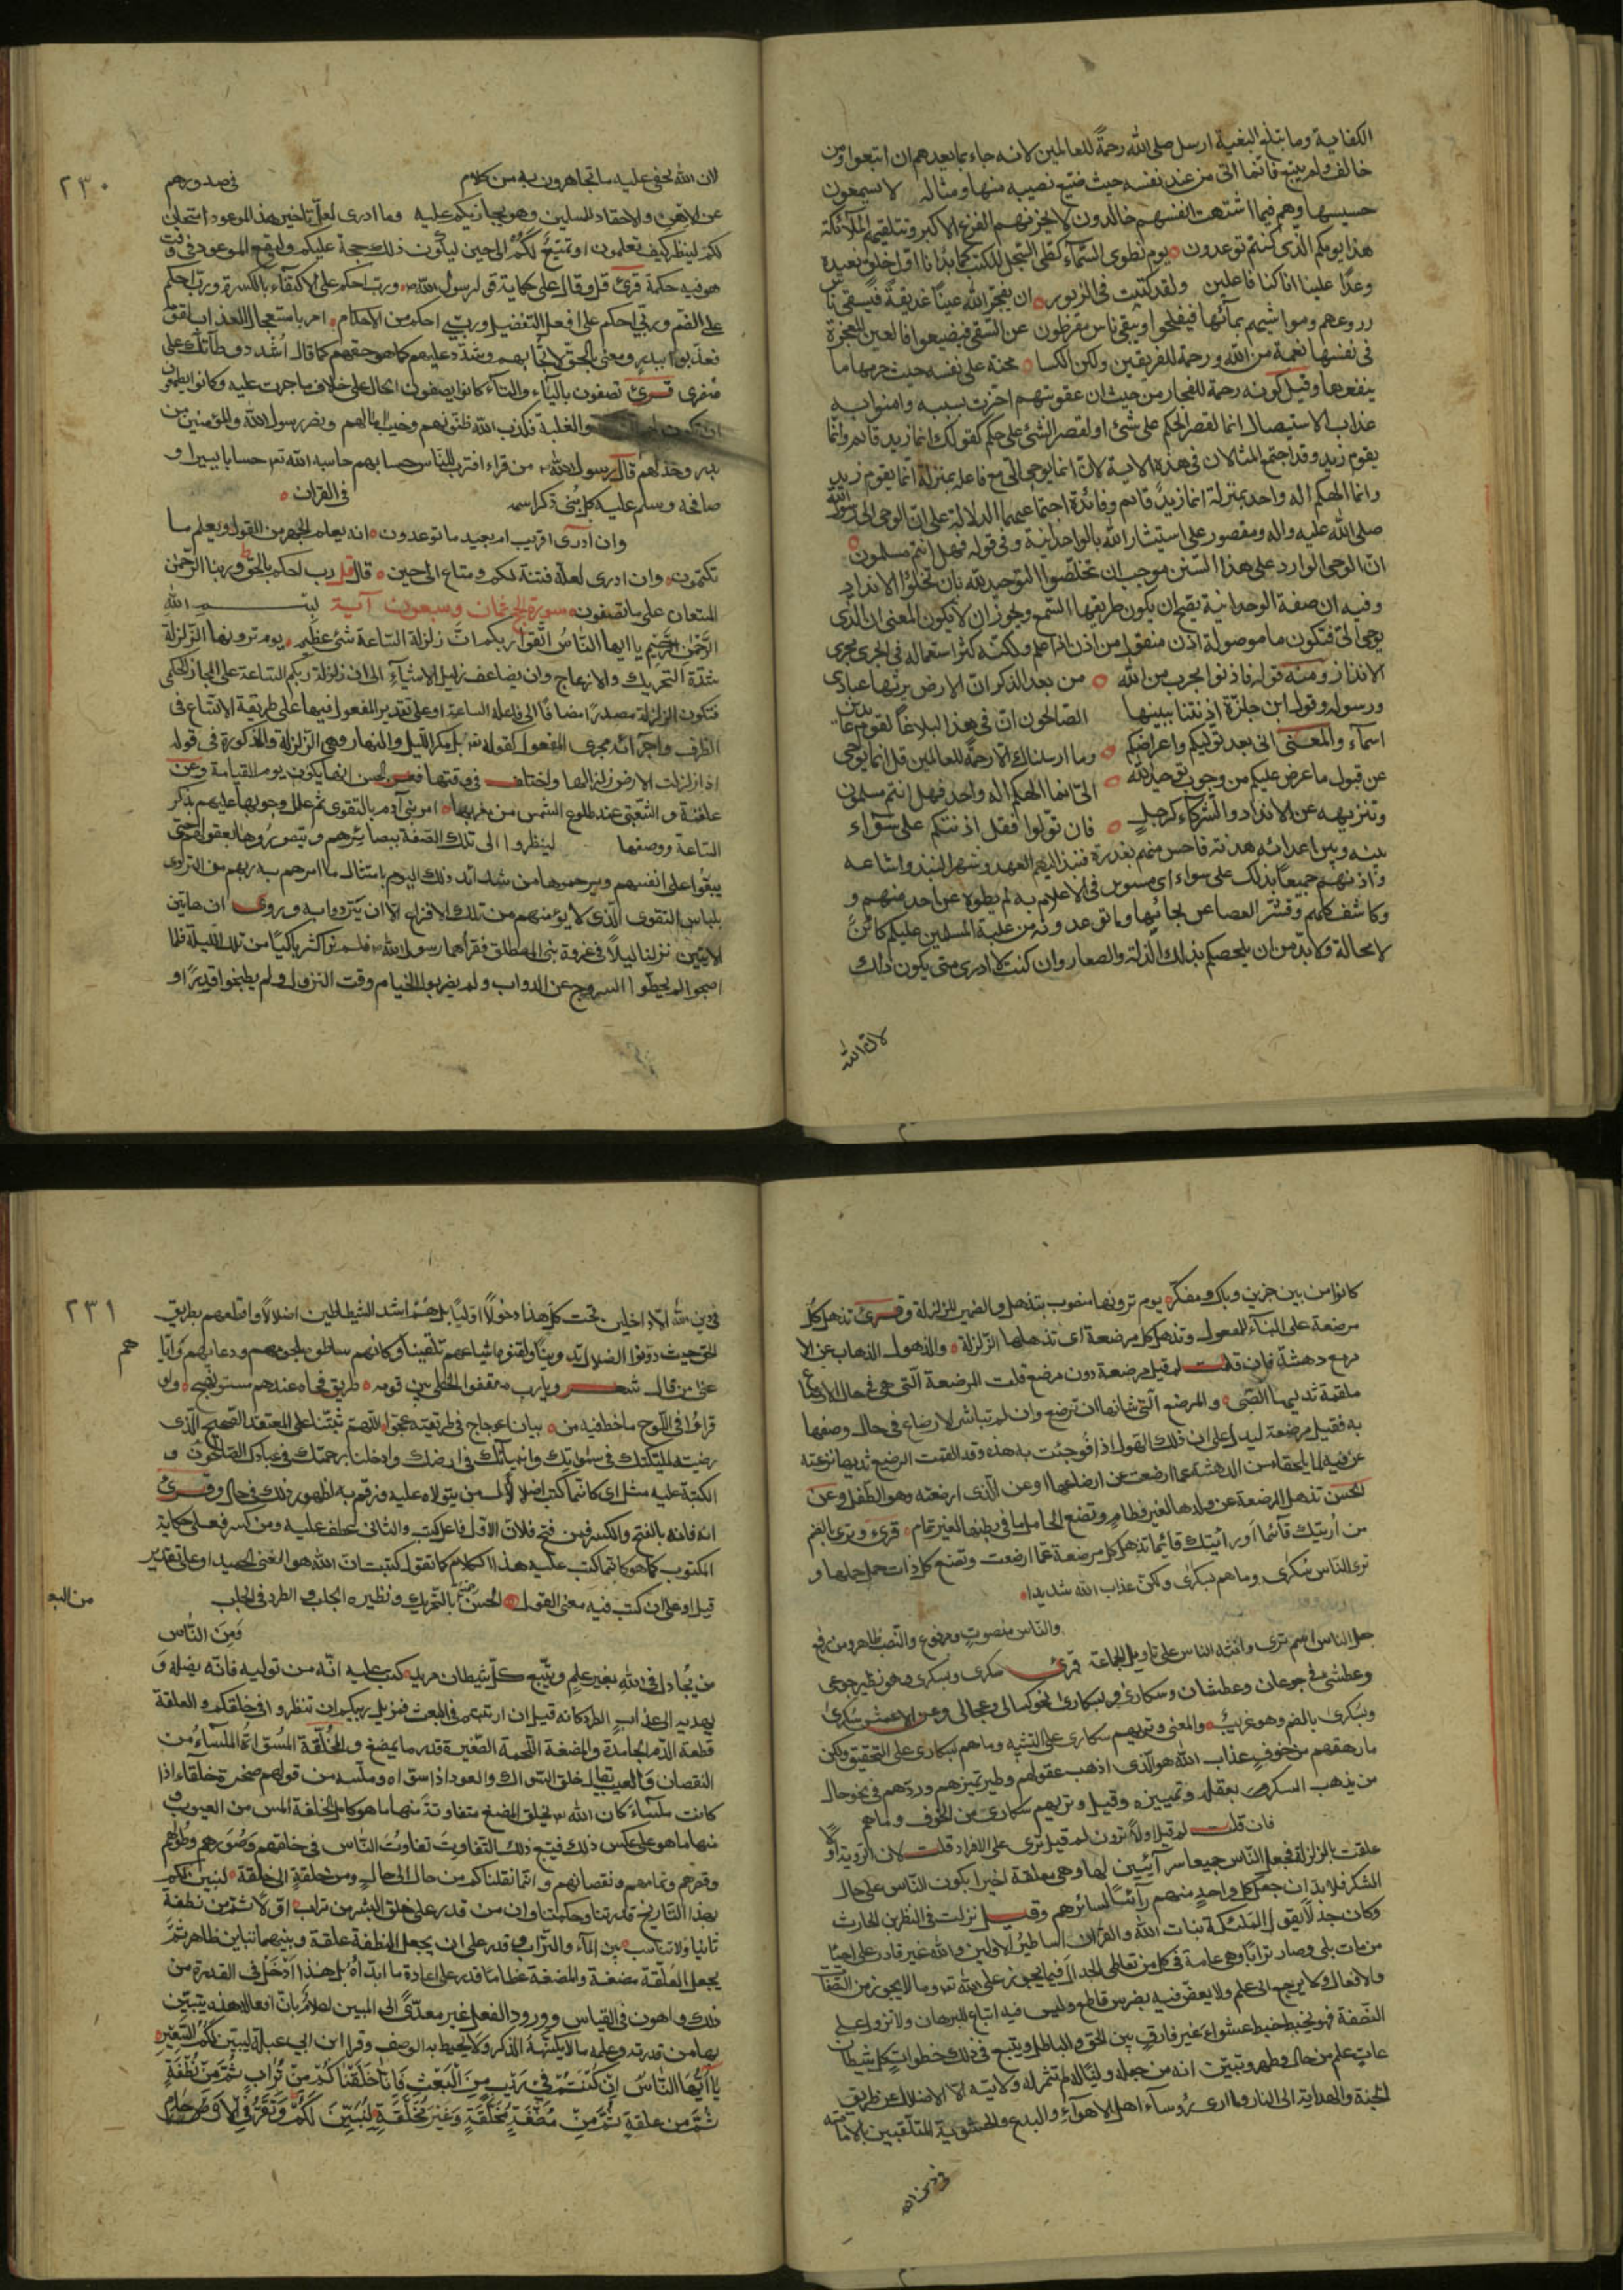 الكفاية وما يبلغ البغية ارسل صلى الله رحمةً للعالمين لانه جاء بما يعدهم ان اتبعوا ومن
خالف ولم يتبع فانما اتى من عند نفسه حيث ضيع نصيبه منها ومثاله لا يسمعون
حسيسها وهم فيما اشتهت انفسهم خالدون لا يحزنهم الفزع الاكبر وتتلقيهم الملائكة
هذا يومكم الذي كنتم توعدون يوم نطوى السماء كطى السجل للكتب كما بدأنا اول خلق نعيده
وعدًا علينا انا كنا فاعلين ولقد كتبت في الزبور ان يفجر الله عينًا غديقة فيسقى ناس
زروعهم ومواشيهم بمائها فيفلحوا ويبقى ناس مفرطون عن السقى فيضيعوا فالعين المفجرة
في نفسها نعمة من الله ورحمة للفريقين ولكن الكسلا محنة على نفسه حيث حرمها ما
ينفعها وقيل كونه رحمة للفجار من حيث ان عقوبتهم اخرت بسببه وامنوا به
عذاب الاستيصال انما لقصر الحكم على شئ او لقصر الشئ على حكم كقولك انما زيد قائم وانما
يقوم زيد وقد اجتمع المثالان في هذه الاية لان انما يوحى الي مع فاعله بمنزلة انما يقوم زيد
وانما الهكم اله واحد بمنزلة انما زيد قائم وفائدة اجتماعهما الدلالة على ان الوحى الى رسول الله
صلى الله عليه واله ومقصور على استيثار الله بالواحدانية وفي قوله فهل انتم مسلمون
ان الوحى الوارد على هذا السنن موجب ان تخلصوا التوحيد لله بان تخلوا الانداد
وفيه ان صفة الوحدانية يصح ان يكون طريقها السمع ويجوز ان لا يكون المعنى ان الذى
يوحى الىّ فتكون ما موصولة اذن منقول من اذن اذا علم ولكنه كثر استعماله في الجرى مجرى
الانذار ومنه قوله فاذنوا بحرب من الله من بعد الذكر ان الارض يرثها عبادى
ورسوله وقول ابن حلزة اذنتنا ببينها الصالحون ان في هذا لبلاغًا لقوم عابدين
اسماء والمعنى انى بعد توليكم واعراضكم وما ارسلناك الا رحمة للعالمين قل انما يوحى
عن قبول ما عرض عليكم من وجوب توحيد الله الىّ انما الهكم اله واحد فهل انتم مسلمون
وتنزيهه عن الانداد والشركاء كرجل فان تولوا فقل اذنتكم على سواء
بينه وبين اعدائه هدنة فاحس منهم بغدرة فنبذ اليهم العهد وشهر النبذ واشاعه
وآذنهم جميعاً بذلك على سواء اى مستوين في الاعلام به لم يطوه عن احد منهم و
وكاشف كلهم وقشر العصا عن لحائها وما توعدونه من غلبة المسلمين عليكم كائن
لا محالة ولابد من ان يلحقكم بذلك الذلة والصغار وان كنت لا ادرى متى يكون ذلك
لان الله
٢٣٠
لان الله لا يخفى عليه ما تجاهرون به من كلام في صدورهم
عن الاحن والاحقاد للمسلمين وهو يجازيكم عليه وما ادرى لعل تاخير هذا الموعود امتحان
لكم لينظر كيف تعلمون او تمتيع لكم الى حين ليكون ذلك حجة عليكم وليقع الموعود في وقت
هو فيه حكمة قرئ قل وقال على حكاية قول رسول الله ورب احكم على الاكتفاء بالكسرة ورب احكم
على الضم وربى احكم على افعل التفضيل وربى احكم من الاحكام امر باستعجال العذاب لقومه
فعذبوا ببدر ومعنى بالحق لا تحابهم وشدد عليهم كما هو حقهم كما قال اشدد وطأتك على
مضر قرئ تصفون بالياء والتاء كانوا يصفون الحال على خلاف ما جرت عليه وكانوا يطمعون
ان تكون والغلبة فكذب الله ظنونهم وخيب آمالهم ونصر رسول الله والمؤمنين
بدر وخذلهم قال رسول الله من قراء اقترب للناس حسابهم حاسبه الله تع حسابا يسيرا و
صافحه وسلم عليه كل نبى ذكر اسمه في القران
وان ادرى اقريب ام بعيد ما توعدون انه يعلم الجهر من القول ويعلم ما
تكتمون وان ادرى لعله فتنة لكم ومتاع الى حين قال قل رب احكم بالحق وربنا الرحمن
المستعان على ما تصفون سورة الحج ثمان وسبعون آية بسم الله
الرحمن الرحيم يا ايها الناس اتقوا ربكم ان زلزلة الساعة شئ عظيم يوم ترونها الزلزلة
شدة التحريك والازعاج وان يضاعف زليل الاشياء الى ان زلزلة ربكم الساعة على المجاز الحكمى
فتكون الزلزلة مصدرًا مضافًا الى فاعله الساعة او على تقدير المفعول فيها على طريقة الاتساع في
الظرف واجرائه مجرى المفعول كقوله تع بل مكر الليل والنهار وهى الزلزلة المذكورة في قوله
اذا زلزلت الارض زلزالها واختلف في وقتها فعن الحسن انها يكون يوم القيامة وعن
علقمة والشعبى عند طلوع الشمس من مغربها امر بنى آدم بالتقوى ثم علل وجوبها عليهم بذكر
الساعة ووصفها لينظروا الى تلك الصفة ببصائرهم ويتصوروها بعقولهم حتى
يبقوا على انفسهم ويرحموها من شدائد ذلك اليوم بامتثال ما امرهم به ربهم من التردى
بلباس التقوى الذى لا يؤمنهم من تلك الافزاع الا ان يتردوا به وروى ان هاتين
الايتين نزلتا ليلاً في غزوة بنى المصطلق فقرأهما رسول الله فلم ير اكثر باكيًا من تلك الليلة فلما
اصبحوا لم يحطوا السروج عن الدواب ولم يضربوا الخيام وقت النزول ولم يطبخوا قدرًا و
كانوا من بين حزين وباك ومفكر يوم ترونها منصوب بتذهل والضمير للزلزلة وقرئ تذهل كل
مرضعة على البناء للمفعول وتذهل كل مرضعة اى تذهلها الزلزلة والذهول الذهاب عن الا
مر مع دهشة فان قلت لم قيل مرضعة دون مرضع قلت المرضعة التى هى في حال الارضاع
ملقمة ثديها الصبى والمرضع التى شانها ان ترضع وان لم تباشر الارضاع في حال وصفها
به فقيل مرضعة ليدل على ان ذلك الهول اذا فوجئت به هذه وقد القمت الرضيع ثديها نزعته
عن فيه لما يلحقها من الدهشة عما ارضعت عن ارضاعها او عن الذى ارضعته وهو الطفل وعن
الحسن تذهل المرضعة عن ولدها لغير فطام وتضع الحامل ما في بطنها لغير تمام قرئ وترى بالضم
من اريتك قائما او رأيتك قائما تذهل كل مرضعة عما ارضعت وتضع كل ذات حمل حملها و
ترى الناس سكرى وما هم بسكرى ولكن عذاب الله شديد
والناس منصوب ومرفوع والنصب ظاهر ومن رفع
جعل الناس اسم ترى وانثه الناس على تاويل الجماعة قرئ سكرى وبسكرى وهو نظير جوعى
وعطشى في جوعان وعطشان وسكارى وبسكارى نحو كسالى وعجالى وعن الاعمش سكرى
وبسكرى بالضم وهو غريب والمعنى وتريهم سكارى على التشبيه وما هم بسكارى على التحقيق ولكن
ما رهقهم من خوف عذاب الله هو الذى اذهب عقولهم وطير تميزهم وردهم في نحو حال
من يذهب السكر بعقله وتمييزه وقيل وتريهم سكارى من الخوف وما هم
فان قلت لم قيل اولاً ترون ثم قيل ترى على الافراد قلت لان الروية اولاً
علقت بالزلزلة فجعل الناس جميعا رآئيين لها وهى معلقة اخيرا بكون الناس على حال
السكر فلا بد ان جعل كل واحد منهم رآئيًا لسائرهم وقيل نزلت في النضر بن الحارث
وكان جدلاً يقول الملئكة بنات الله والقران اساطير الاولين والله غير قادر على احياء
من مات بلى وصار ترابًا وهى عامة في كل من تعاطى الجدال فيما يجوز على الله تع وما لا يجوز من الصفات
والافعال ولا يرجع الى علم ولا يعض فيه بضرس قاطع وليس فيه اتباع للبرهان ولا نزول على
النصفة فهو يخبط خبط عشواء غير فارق بين الحق والباطل ويتبع في ذلك خطوات كل شيطان
عات علم من حاله وظهر وتبين انه من جعله وليًا له لم تثمر له ولايته الا الاضلال عن طريق
الجنة والهداية الى النار وما ارى رؤساء اهل الاهواء والبدع والحشوية المتلقبين بالامامة
في دين الله
٢٣١
في دين الله الا داخلين تحت كل هذا دخولاً اوليًا بل هم اشد الشياطين اضلالاً واقطعهم بطريق
الحق حيث دونوا الضلال تدوينًا ولقنوه اشياعهم تلقينًا وكانهم ساطوه بلحومهم ودمائهم واياهم
عنى من قال شعر ويارب مقفو الخطى بين قومه طريق نجاة عندهم مستو نهج ولو
قراوا في اللوح ما خط فيه من بيان اعوجاج في طريقته عجوا اللهم ثبتنا على المعتقد الصحيح الذى
رضيته لملئكتك في سمواتك وانبيائك في ارضك وادخلنا برحمتك في عبادك الصالحين و
الكتبة عليه مثل اى كانما كتب اضلال من يتولاه عليه ورقم به لظهور ذلك في حاله وقرئ
انه فانه بالفتح والكسر فمن فتح فلان الاول فاعل كتب والثانى عطف عليه ومن كسر فعلى حكاية
المكتوب كما هو كانما كتب عليه هذا الكلام كما تقول كتبت ان الله هو الغنى الحميد او على تقدير
قيل او على ان كتب فيه معنى القول الحسن بالتحريك ونظيره الجلب والطرد في الجلب
من البعث
ومن الناس
من يجادل في الله بغير علم ويتبع كل شيطان مريد كتب عليه انه من توليه فانه يضله و
يهديه الى عذاب الطرد كانه قيل ان ارتبتم في البعث فمزيل ريبكم ان تنظروا في خلقكم والعلقة
قطعة الدم الجامدة والمضغة اللحمة الصغيرة قدر ما يمضغ والمخلقة المسواة الملساء من
النقصان والعيب يقال خلق السواك والعود اذا سواه وملسه من قولهم صخرة خلقاء اذا
كانت ملساء كان الله تع يخلق المضغ متفاوتة منها ما هو كامل الخلقة املس من العيوب و
منها ما هو على عكس ذلك فيتبع ذلك التفاوت تفاوت الناس في خلقهم وصورهم وطولهم
وقصرهم وتمامهم ونقصانهم وانما نقلناكم من حال الى حال ومن خلقة الى خلقة لنبين لكم
بهذا التدريج قدرتنا وحكمتنا وان من قدر على خلق البشر من تراب اولا ثم من نطفة
ثانيا ولا تناسب بين الماء والتراب وقدر على ان يجعل النطفة علقة وبينهما تباين ظاهر ثم
يجعل العلقة مضغة والمضغة عظامًا قدر على اعادة ما ابداه بل هذا ادخل في القدرة من
ذلك واهون في القياس وورود الفعل غير معدّىً الى المبين اعلام بان افعاله هذه يتبين
بها من قدرته وعلمه ما لا يكتنهه الذكر ولا يحيط به الوصف وقرا ابن ابي عبلة ليبين لكم
يا ايها الناس ان كنتم في ريب من البعث فانا خلقناكم من تراب ثم من نطفة
ثم من علقة ثم من مضغة مخلقة وغير مخلقة لنبين لكم ونقر في الارحام